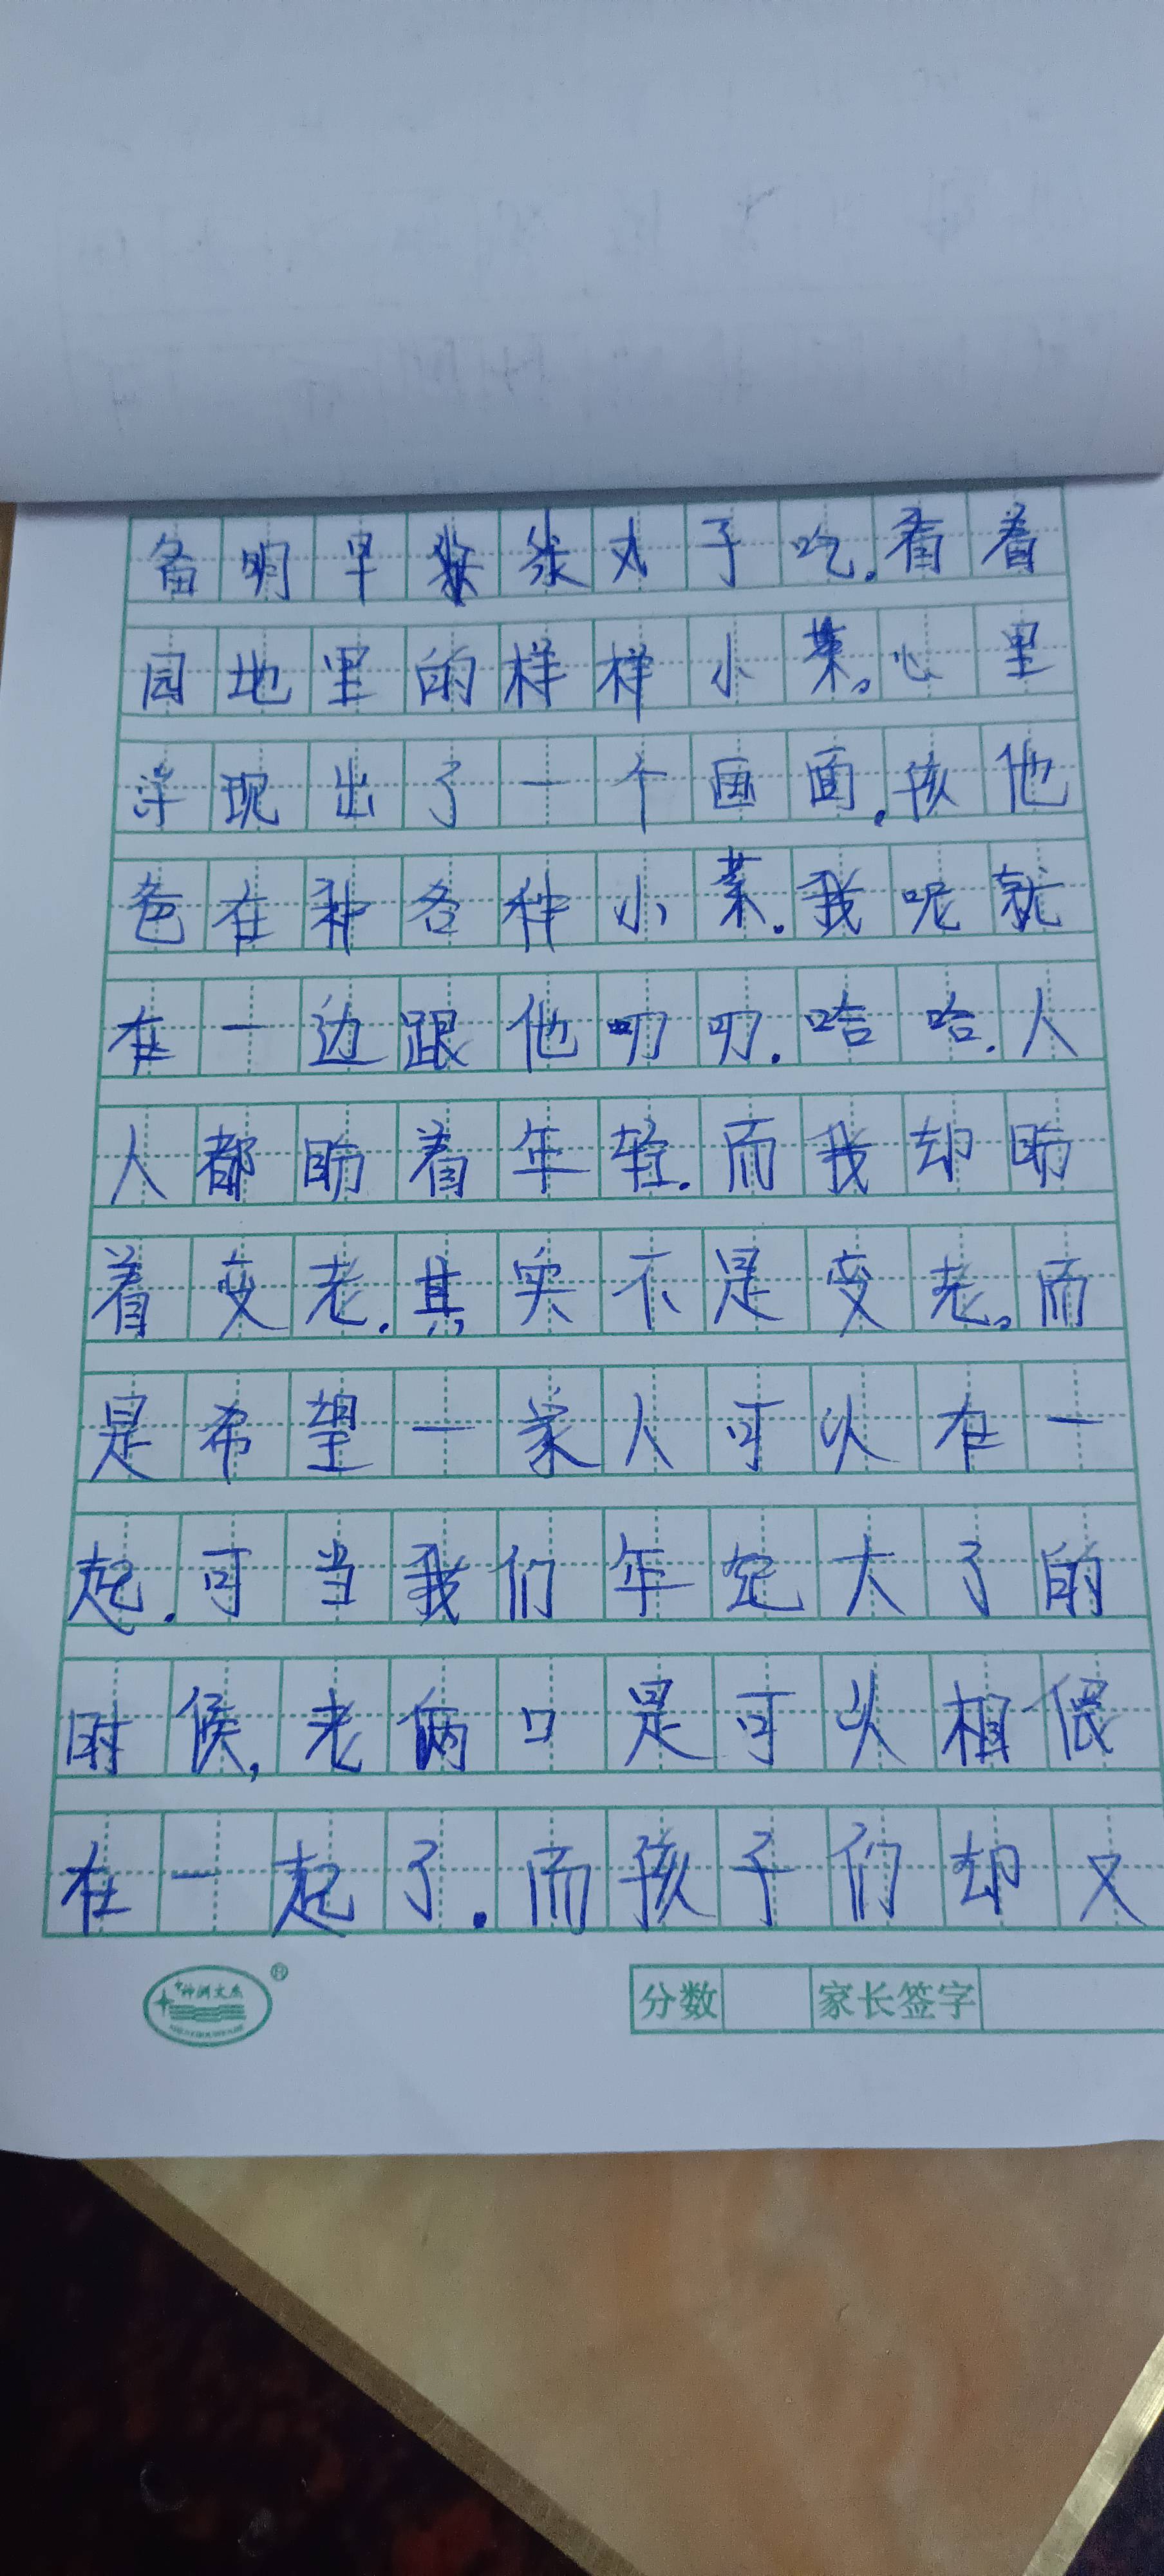 备明早煞煞丸子吃.看着
园地里的样样小菜。心里
浮现出了一个画面.孩他
爸在种各种小菜.我呢就
在一边跟他叨叨.哈哈.人
人都盼着年轻.而我却盼
着变老.其实不是变老。而
是希望一家人可以在一
起.可当我们年纪大了的
时候,老俩口是可以相偎
在一起了.而孩子们却又
神洲文杰®
分数 家长签字